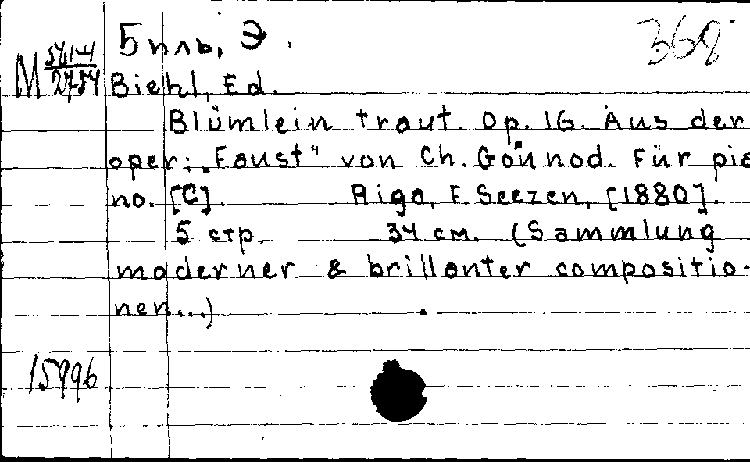 Биль, Э.
368
М 561-4/2754
Biehl, Ed.
Blümlein traut. Op. 16. Aus der
oper: „Faust" von Ch. Gounod. Für pia
no. [C]. Riga, E. Seezen, [1880].
5 стр. 34 см. (Sammlung
moderner & brillanter compositio-
nen...)
15996